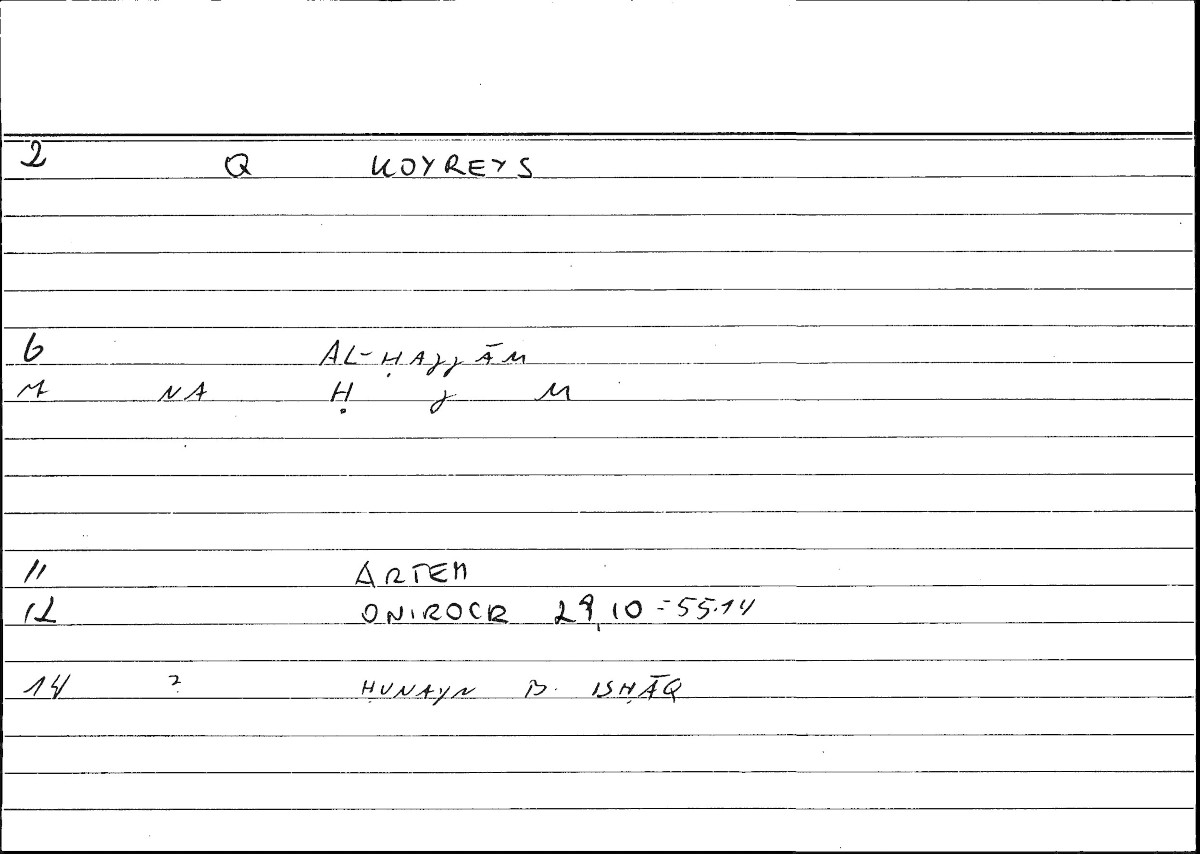 2 Q KOYREYS
6 AL-ḤAyyĀM
M NA Ḥ y M
11 ARTEM
12 ONIROCR 29,10 = 55.14
14 ? ḤUNAYN B. ISḤĀQ